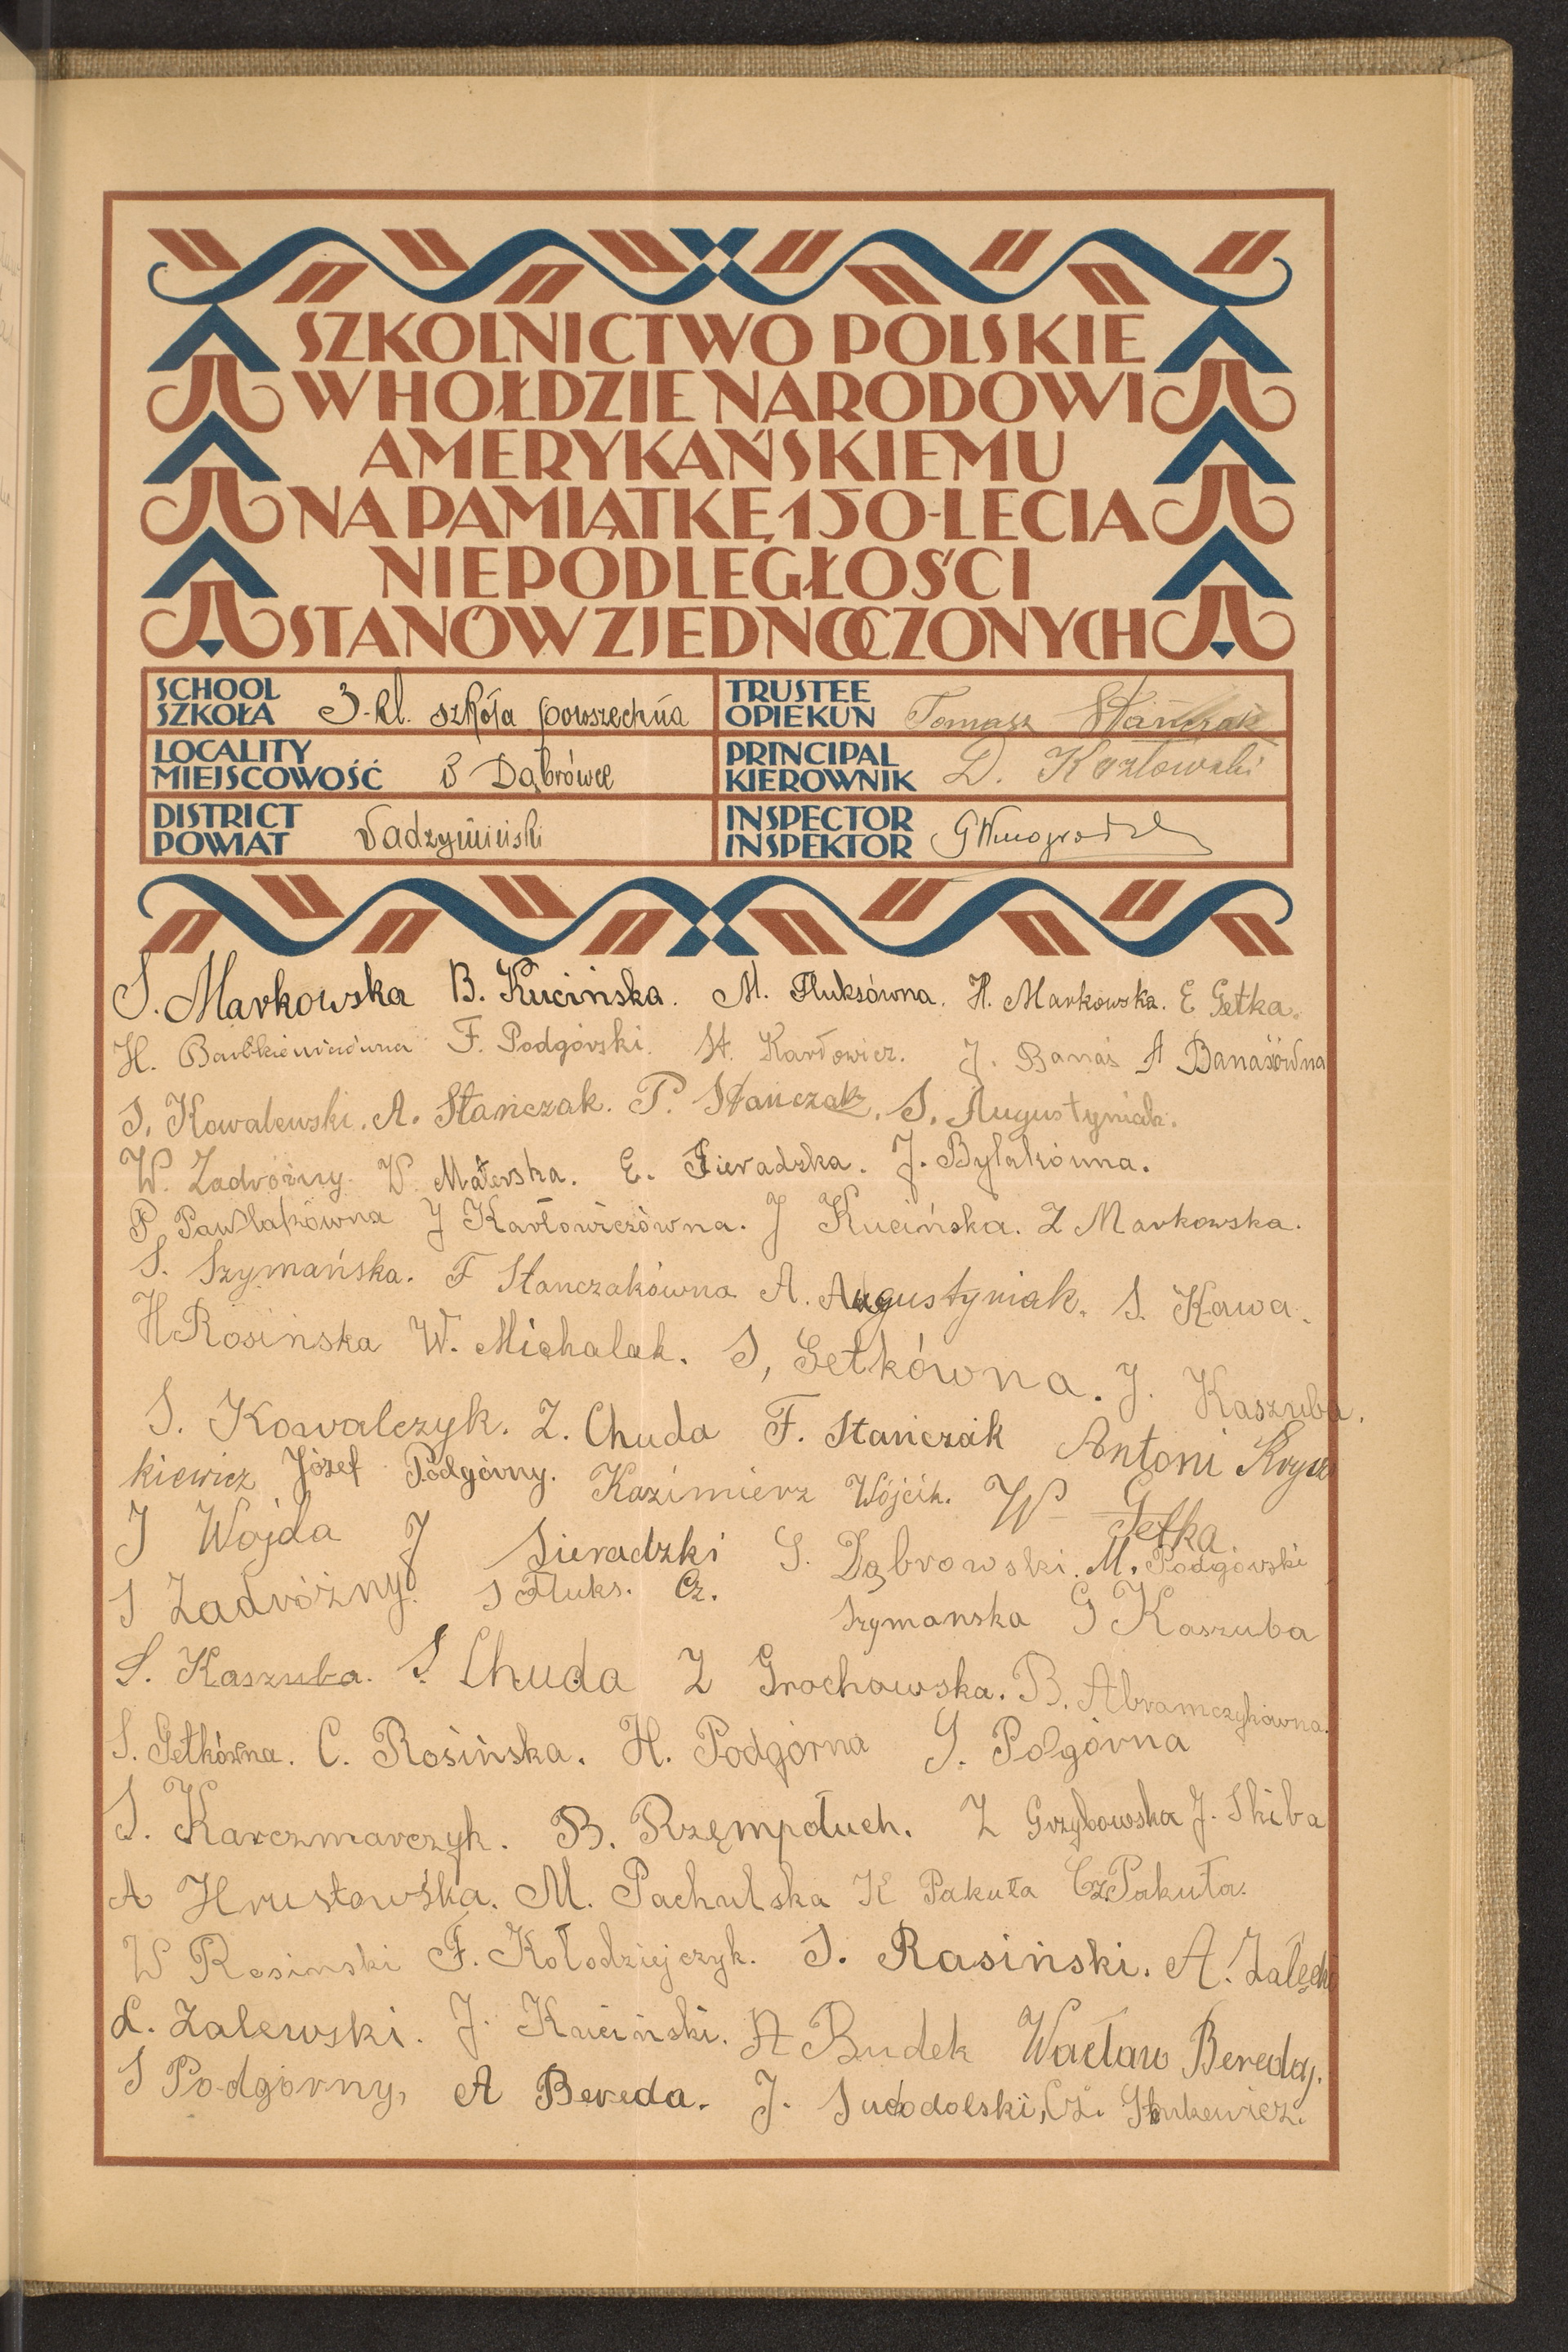 SZKOLNICTWO POLSKIE
W HOŁDZIE NARODOWI
AMERYKAŃSKIEMU
NA PAMIĄTKĘ 150-LECIA
NIEPODLEGŁOŚCI
STANÓW ZJEDNOCZONYCH
SCHOOL
SZKOŁA 3-kl. szkoła powszechna
TRUSTEE
OPIEKUN Tomasz Stańczak
LOCALITY
MIEJSCOWOŚĆ Dąbrówce
PRINCIPAL
KIEROWNIK D. Kozłowski
DISTRICT
POWIAT Radzymiński
INSPECTOR
INSPEKTOR
S. Markowska B. Kucińska. M. Fluksówna. H. Markowska. E Getka.
H. F. Podgórski. St. Karłowicz. J. Banaś A Banasówna
S. Kowalewski. A. Stańczak. P. Stańczak. S. Augustyniak.
W. Zadróżny. W. Materska. E. Sieradzka. J. Bylakówna.
P. Pawlakówna J Karłowiczówna. J Kucińska. Z Markowska.
S. Szymańska. F Stanczakówna A. Augustyniak. S. Kawa.
H Rosińska W. Michalak. S, Getkówna. J. Kaszuba.
S. Kowalczyk. Z. Chuda F. Stańczak Antoni Krysz
kiewicz Józef Podgórny. Kazimierz Wójcik. W Getka
J Wojda J Sieradzki S. Dąbrowski. M. Podgórski
S Zadróżny. S Fluks. Cz. Szymanska G Kaszuba
S. Kaszuba. S. Chuda Z Grochowska. B. Abramczykówna.
S. Getkówna. C. Rosińska. H. Podgórna S. Podgórna
S. Karczmarczyk. B. Rzempołuch. Z Grzybowska J. Skiba
A Hrustowska. M. Pachulska K Pakuła Cz. Pakuła.
W Rosinski F. Kołodziejczyk. S. Rasiński. A. Załęcki
L. Zalewski. J. Kuciński. A Budek Wacław Bereda.
S Podgórny, A Bereda. J. Suchodolski, Cz.